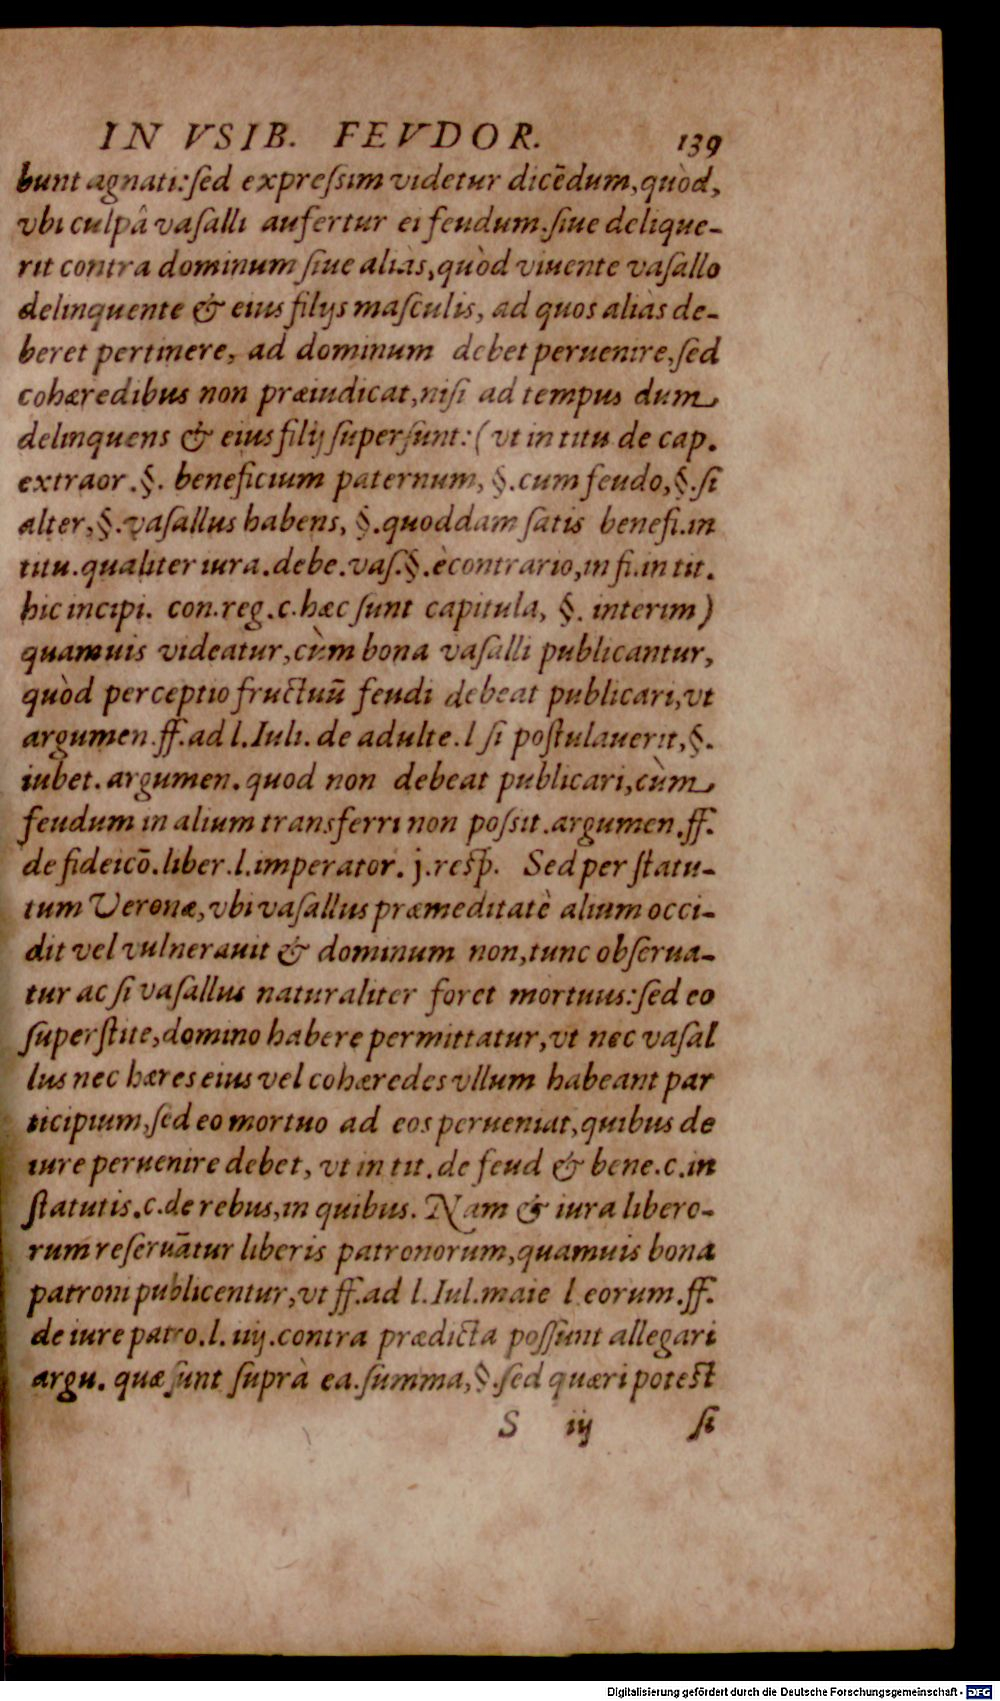 IN VSIB. FEVDOR. 139
bunt agnati: sed expressim videtur dicẽdum, quòd,
vbi culpâ vasalli aufertur ei feudum. siue delique-
rit contra dominum siue aliàs, quòd viuente vasallo
delinquente & eius filijs masculis, ad quos aliàs de-
beret pertinere, ad dominum debet peruenire, sed
cohæredibus non præiudicat, nisi ad tempus dum
delinquens & eius filij supersunt: (vt in titu de cap.
extraor. §. beneficium paternum, §. cum feudo, §. si
alter, §. vasallus habens, §. quoddam satis benefi. in
titu. qualiter iura. debe. vas. §. ècontrario, in fi. in tit.
hic incipi. con. reg. c. hæc sunt capitula, §. interim)
quamuis videatur, cùm bona vasalli publicantur,
quòd perceptio fructuũ feudi debeat publicari, vt
argumen. ff. ad l. Iuli. de adulte. l si postulauerit, §.
iubet. argumen. quod non debeat publicari, cùm
feudum in alium transferri non possit. argumen. ff.
de fideicõ. liber. l. imperator. j. resp̃. Sed per statu-
tum Veronæ, vbi vasallus præmeditatè alium occi-
dit vel vulnerauit & dominum non, tunc obserua-
tur ac si vasallus naturaliter foret mortuus: sed eo
superstite, domino habere permittatur, vt nec vasal
lus nec hæres eius vel cohæredes vllum habeant par
ticipium, sed eo mortuo ad eos perueniat, quibus de
iure peruenire debet, vt in tit. de feud & bene. c. in
statutis. c. de rebus, in quibus. Nam & iura libero-
rum reseruãtur liberis patronorum, quamuis bona
patroni publicentur, vt ff. ad l. Iul. maie l. eorum. ff.
de iure patro. l. iiij. contra prædicta possunt allegari
argu. quæ sunt suprà ea. summa, §. sed quæri potest
S iij si
Digitalisierung gefördert durch die Deutsche Forschungsgemeinschaft - DFG